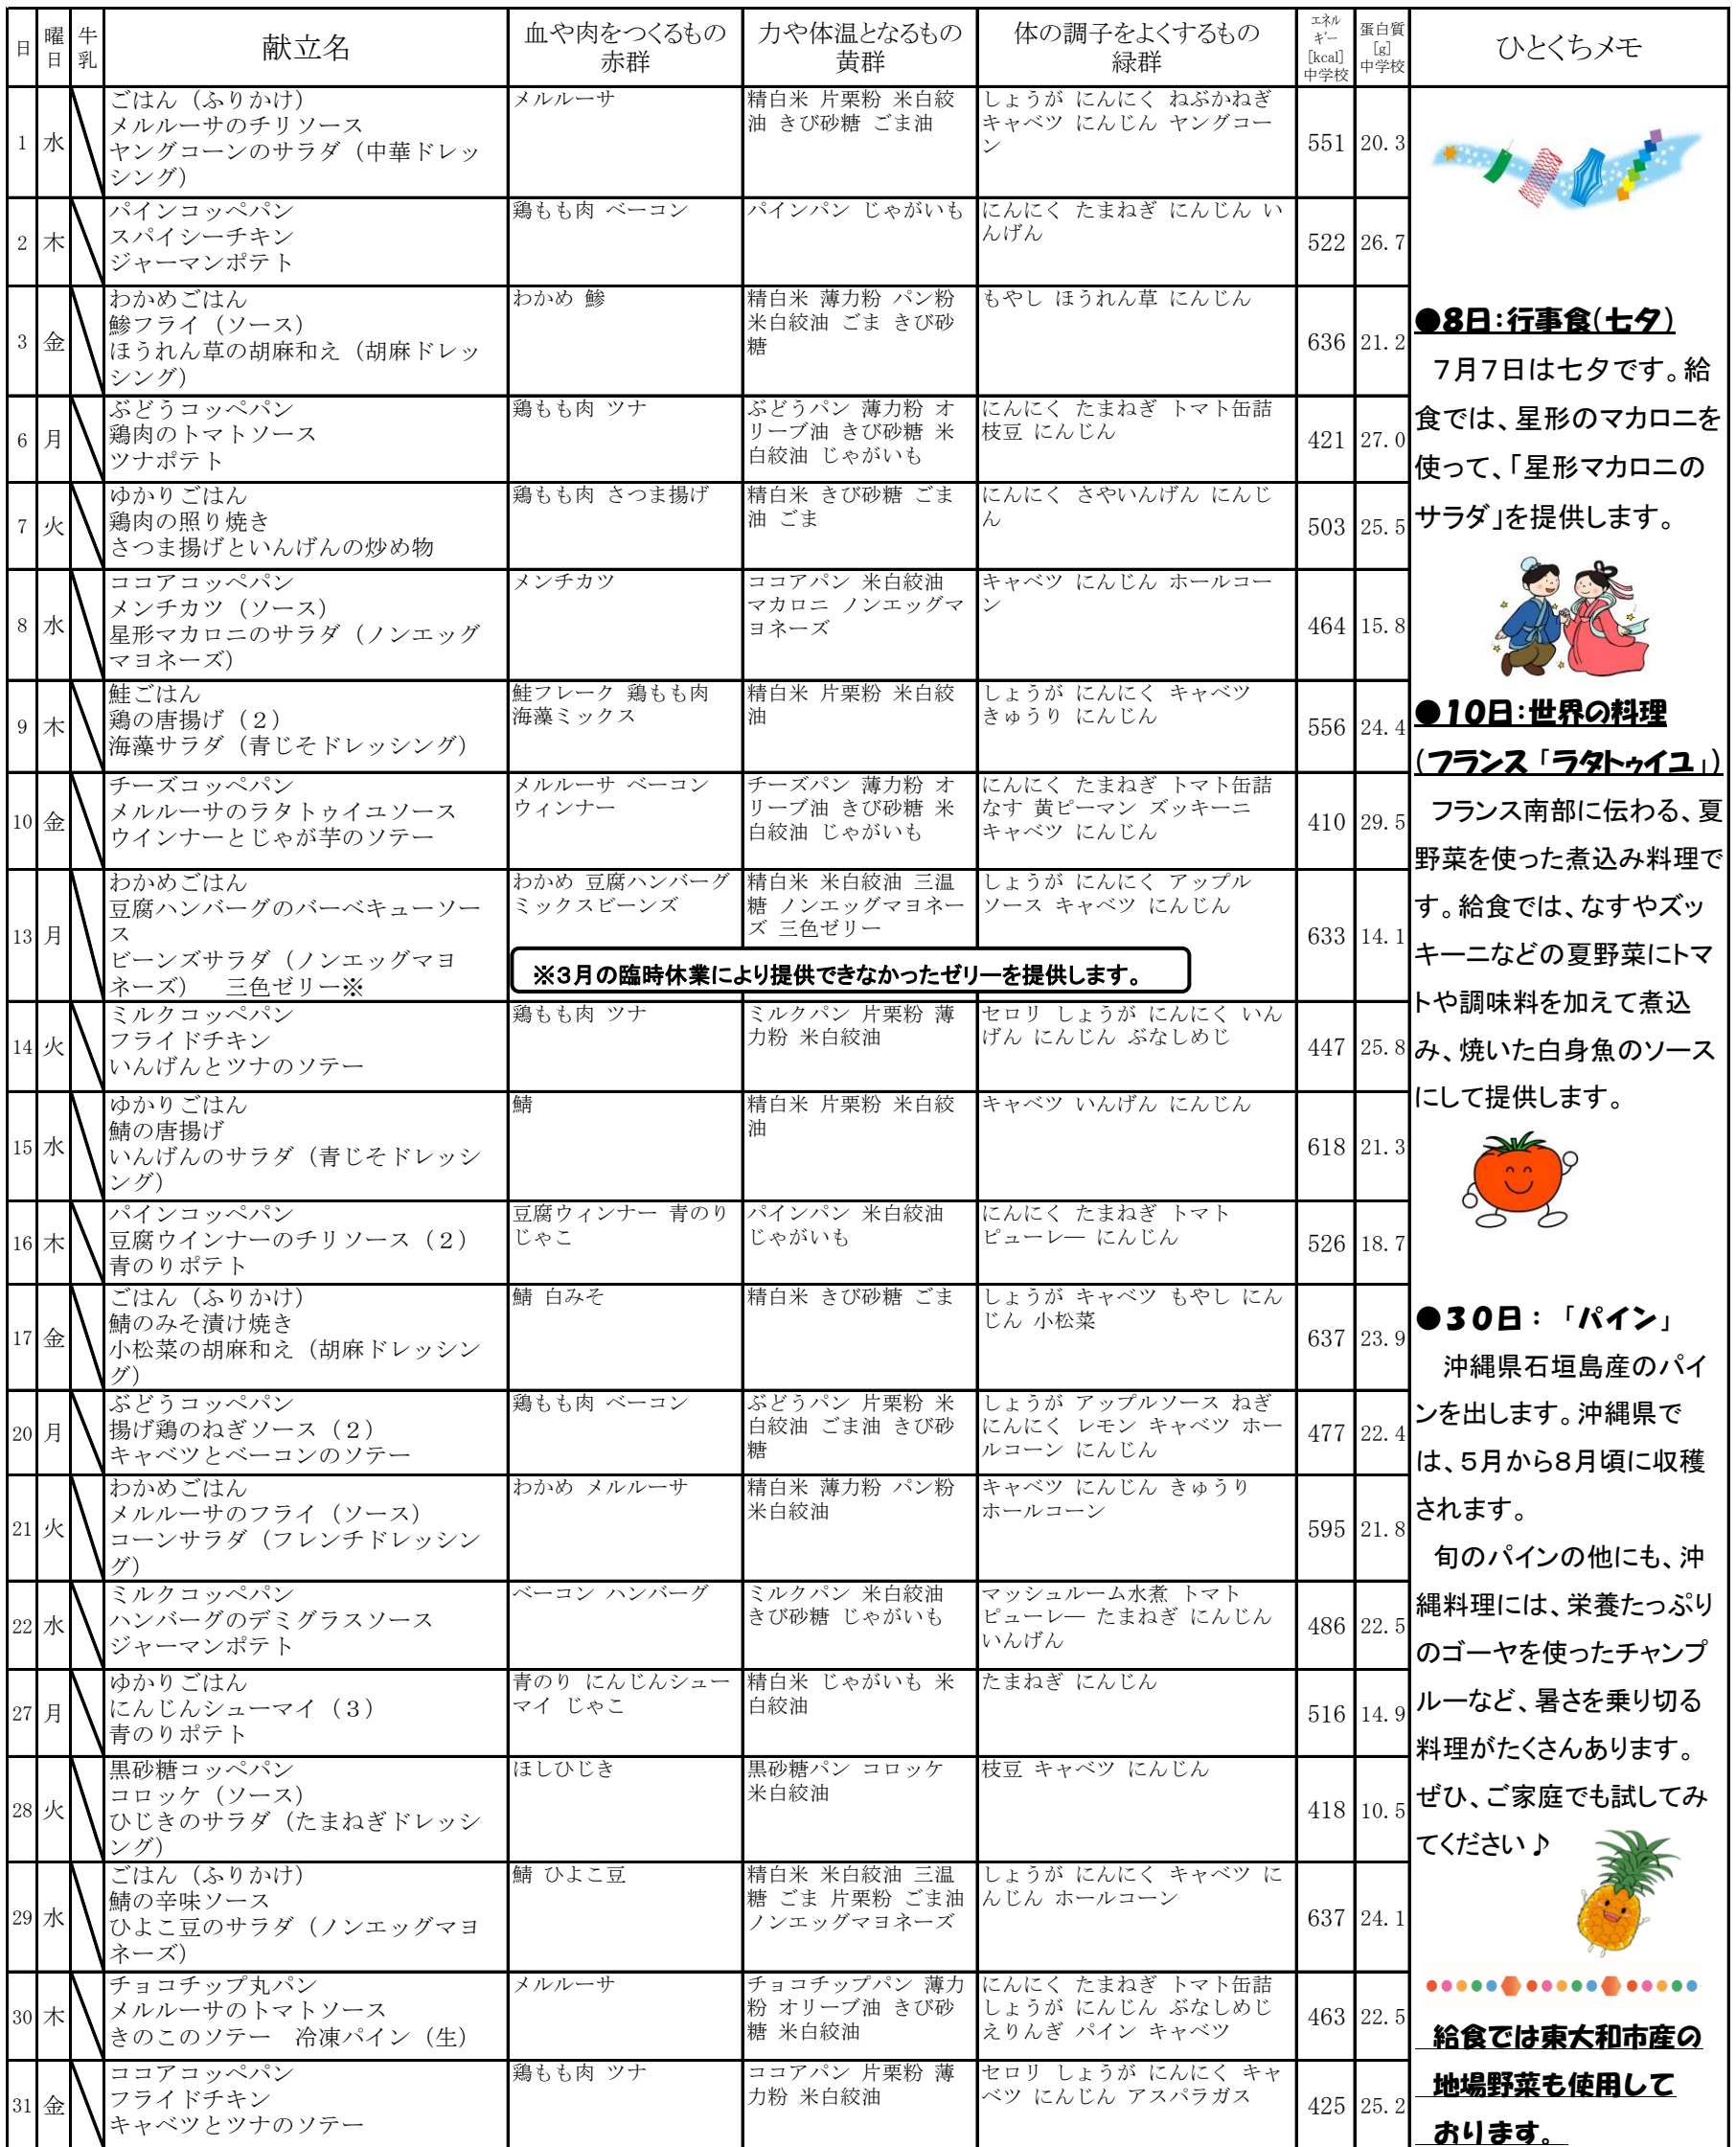 日 曜日 牛乳 献立名 血や肉をつくるもの 赤群 力や体温となるもの 黄群 体の調子をよくするもの 緑群 エネルギー [kcal] 中学校 蛋白質 [g] 中学校 ひとくちメモ
1 水
ごはん（ふりかけ）
メルルーサのチリソース
ヤングコーンのサラダ（中華ドレッ
シング）
メルルーサ
精白米 片栗粉 米白絞
油 きび砂糖 ごま油
しょうが にんにく ねぶかねぎ
キャベツ にんじん ヤングコー
ン
551 20.3
2 木
パインコッペパン
スパイシーチキン
ジャーマンポテト
鶏もも肉 ベーコン
パインパン じゃがいも
にんにく たまねぎ にんじん い
んげん
522 26.7
3 金
わかめごはん
鯵フライ（ソース）
ほうれん草の胡麻和え（胡麻ドレッ
シング）
わかめ 鯵
精白米 薄力粉 パン粉
米白絞油 ごま きび砂
糖
もやし ほうれん草 にんじん
636 21.2
6 月
ぶどうコッペパン
鶏肉のトマトソース
ツナポテト
鶏もも肉 ツナ
ぶどうパン 薄力粉 オ
リーブ油 きび砂糖 米
白絞油 じゃがいも
にんにく たまねぎ トマト缶詰
枝豆 にんじん
421 27.0
7 火
ゆかりごはん
鶏肉の照り焼き
さつま揚げといんげんの炒め物
鶏もも肉 さつま揚げ
精白米 きび砂糖 ごま
油 ごま
にんにく さやいんげん にんじ
ん
503 25.5
8 水
ココアコッペパン
メンチカツ（ソース）
星形マカロニのサラダ（ノンエッグ
マヨネーズ）
メンチカツ
ココアパン 米白絞油
マカロニ ノンエッグマ
ヨネーズ
キャベツ にんじん ホールコー
ン
464 15.8
9 木
鮭ごはん
鶏の唐揚げ（２）
海藻サラダ（青じそドレッシング）
鮭フレーク 鶏もも肉
海藻ミックス
精白米 片栗粉 米白絞
油
しょうが にんにく キャベツ
きゅうり にんじん
556 24.4
10 金
チーズコッペパン
メルルーサのラタトゥイユソース
ウインナーとじゃが芋のソテー
メルルーサ ベーコン
ウィンナー
チーズパン 薄力粉 オ
リーブ油 きび砂糖 米
白絞油 じゃがいも
にんにく たまねぎ トマト缶詰
なす 黄ピーマン ズッキーニ
キャベツ にんじん
410 29.5
13 月
わかめごはん
豆腐ハンバーグのバーベキューソー
ス
ビーンズサラダ（ノンエッグマヨ
ネーズ）　三色ゼリー※
わかめ 豆腐ハンバーグ
ミックスビーンズ
精白米 米白絞油 三温
糖 ノンエッグマヨネー
ズ 三色ゼリー
しょうが にんにく アップル
ソース キャベツ にんじん
633 14.1
※３月の臨時休業により提供できなかったゼリーを提供します。
14 火
ミルクコッペパン
フライドチキン
いんげんとツナのソテー
鶏もも肉 ツナ
ミルクパン 片栗粉 薄
力粉 米白絞油
セロリ しょうが にんにく いん
げん にんじん ぶなしめじ
447 25.8
15 水
ゆかりごはん
鯖の唐揚げ
いんげんのサラダ（青じそドレッシ
ング）
鯖
精白米 片栗粉 米白絞
油
キャベツ いんげん にんじん
618 21.3
16 木
パインコッペパン
豆腐ウインナーのチリソース（２）
青のりポテト
豆腐ウィンナー 青のり
じゃこ
パインパン 米白絞油
じゃがいも
にんにく たまねぎ トマト
ピューレ― にんじん
526 18.7
17 金
ごはん（ふりかけ）
鯖のみそ漬け焼き
小松菜の胡麻和え（胡麻ドレッシン
グ）
鯖 白みそ
精白米 きび砂糖 ごま
しょうが キャベツ もやし にん
じん 小松菜
637 23.9
20 月
ぶどうコッペパン
揚げ鶏のねぎソース（２）
キャベツとベーコンのソテー
鶏もも肉 ベーコン
ぶどうパン 片栗粉 米
白絞油 ごま油 きび砂
糖
しょうが アップルソース ねぎ
にんにく レモン キャベツ ホー
ルコーン にんじん
477 22.4
21 火
わかめごはん
メルルーサのフライ（ソース）
コーンサラダ（フレンチドレッシン
グ）
わかめ メルルーサ
精白米 薄力粉 パン粉
米白絞油
キャベツ にんじん きゅうり
ホールコーン
595 21.8
22 水
ミルクコッペパン
ハンバーグのデミグラスソース
ジャーマンポテト
ベーコン ハンバーグ
ミルクパン 米白絞油
きび砂糖 じゃがいも
マッシュルーム水煮 トマト
ピューレ― たまねぎ にんじん
いんげん
486 22.5
27 月
ゆかりごはん
にんじんシューマイ（３）
青のりポテト
青のり にんじんシュー
マイ じゃこ
精白米 じゃがいも 米
白絞油
たまねぎ にんじん
516 14.9
28 火
黒砂糖コッペパン
コロッケ（ソース）
ひじきのサラダ（たまねぎドレッシ
ング）
ほしひじき
黒砂糖パン コロッケ
米白絞油
枝豆 キャベツ にんじん
418 10.5
29 水
ごはん（ふりかけ）
鯖の辛味ソース
ひよこ豆のサラダ（ノンエッグマヨ
ネーズ）
鯖 ひよこ豆
精白米 米白絞油 三温
糖 ごま 片栗粉 ごま油
ノンエッグマヨネーズ
しょうが にんにく キャベツ に
んじん ホールコーン
637 24.1
30 木
チョコチップ丸パン
メルルーサのトマトソース
きのこのソテー　冷凍パイン（生）
メルルーサ
チョコチップパン 薄力
粉 オリーブ油 きび砂
糖 米白絞油
にんにく たまねぎ トマト缶詰
しょうが にんじん ぶなしめじ
えりんぎ パイン キャベツ
463 22.5
31 金
ココアコッペパン
フライドチキン
キャベツとツナのソテー
鶏もも肉 ツナ
ココアパン 片栗粉 薄
力粉 米白絞油
セロリ しょうが にんにく キャ
ベツ にんじん アスパラガス
425 25.2
●8日：行事食（七夕）
７月７日は七夕です。給
食では、星形のマカロニを
使って、「星形マカロニの
サラダ」を提供します。
●10日：世界の料理
（フランス「ラタトゥイユ」）
フランス南部に伝わる、夏
野菜を使った煮込み料理で
す。給食では、なすやズッ
キーニなどの夏野菜にトマ
トや調味料を加えて煮込
み、焼いた白身魚のソース
にして提供します。
●３０日：「パイン」
沖縄県石垣島産のパイ
ンを出します。沖縄県で
は、５月から８月頃に収穫
されます。
旬のパインの他にも、沖
縄料理には、栄養たっぷり
のゴーヤを使ったチャンプ
ルーなど、暑さを乗り切る
料理がたくさんあります。
ぜひ、ご家庭でも試してみ
てください♪
給食では東大和市産の
地場野菜も使用して
おります。